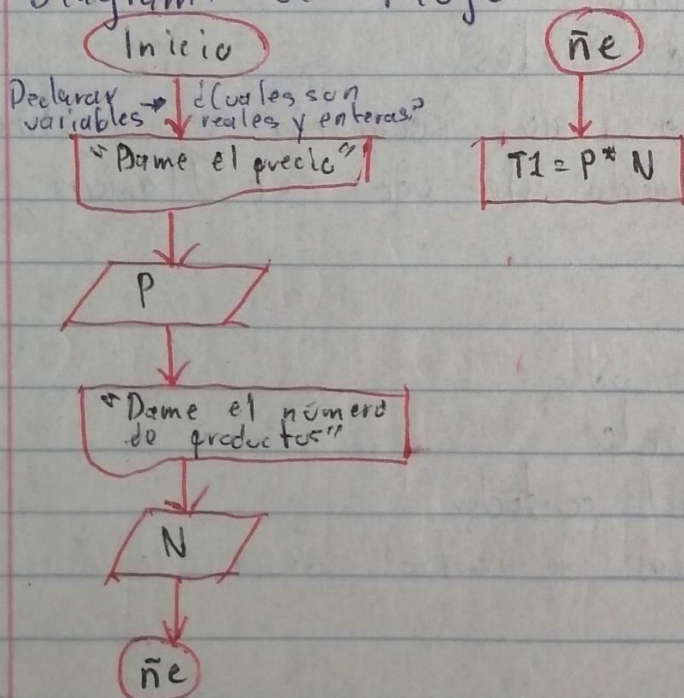 Diagrama de Flujo
Inicio
Declarar
variables
¿Cuales son
reales y enteras?
"Dame el precio"
P
"Dame el número
de productos"
N
ñe
ñe
T1 = P* N